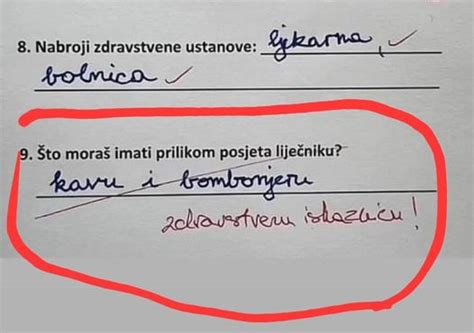 8. Nabroji zdravstvene ustanove: ljekarna,
bolnica
9. Što moraš imati prilikom posjeta liječniku?
kavu i bombonjeru
zdravstvenu iskaznicu!